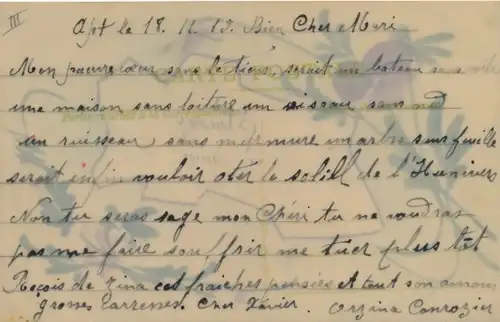 III
Apt le 18. 11. 13. Bien Cher Mari
Mon pauvre cœur sans le tiens, serait un bateau sans voile
une maison sans toiture un oiseau sans nid
un ruisseau, sans murmure un arbre sans feuille
serait enfin vouloir oter le solill de l'Hunivers
Non tu seras sage mon Chéri tu ne voudras
pas me faire souffrir me tuer plus tôt
Reçois de Zina cet fraiches pensées et tout son amour
grosses Carresses. Cher Xavier. Orzina Conrozier